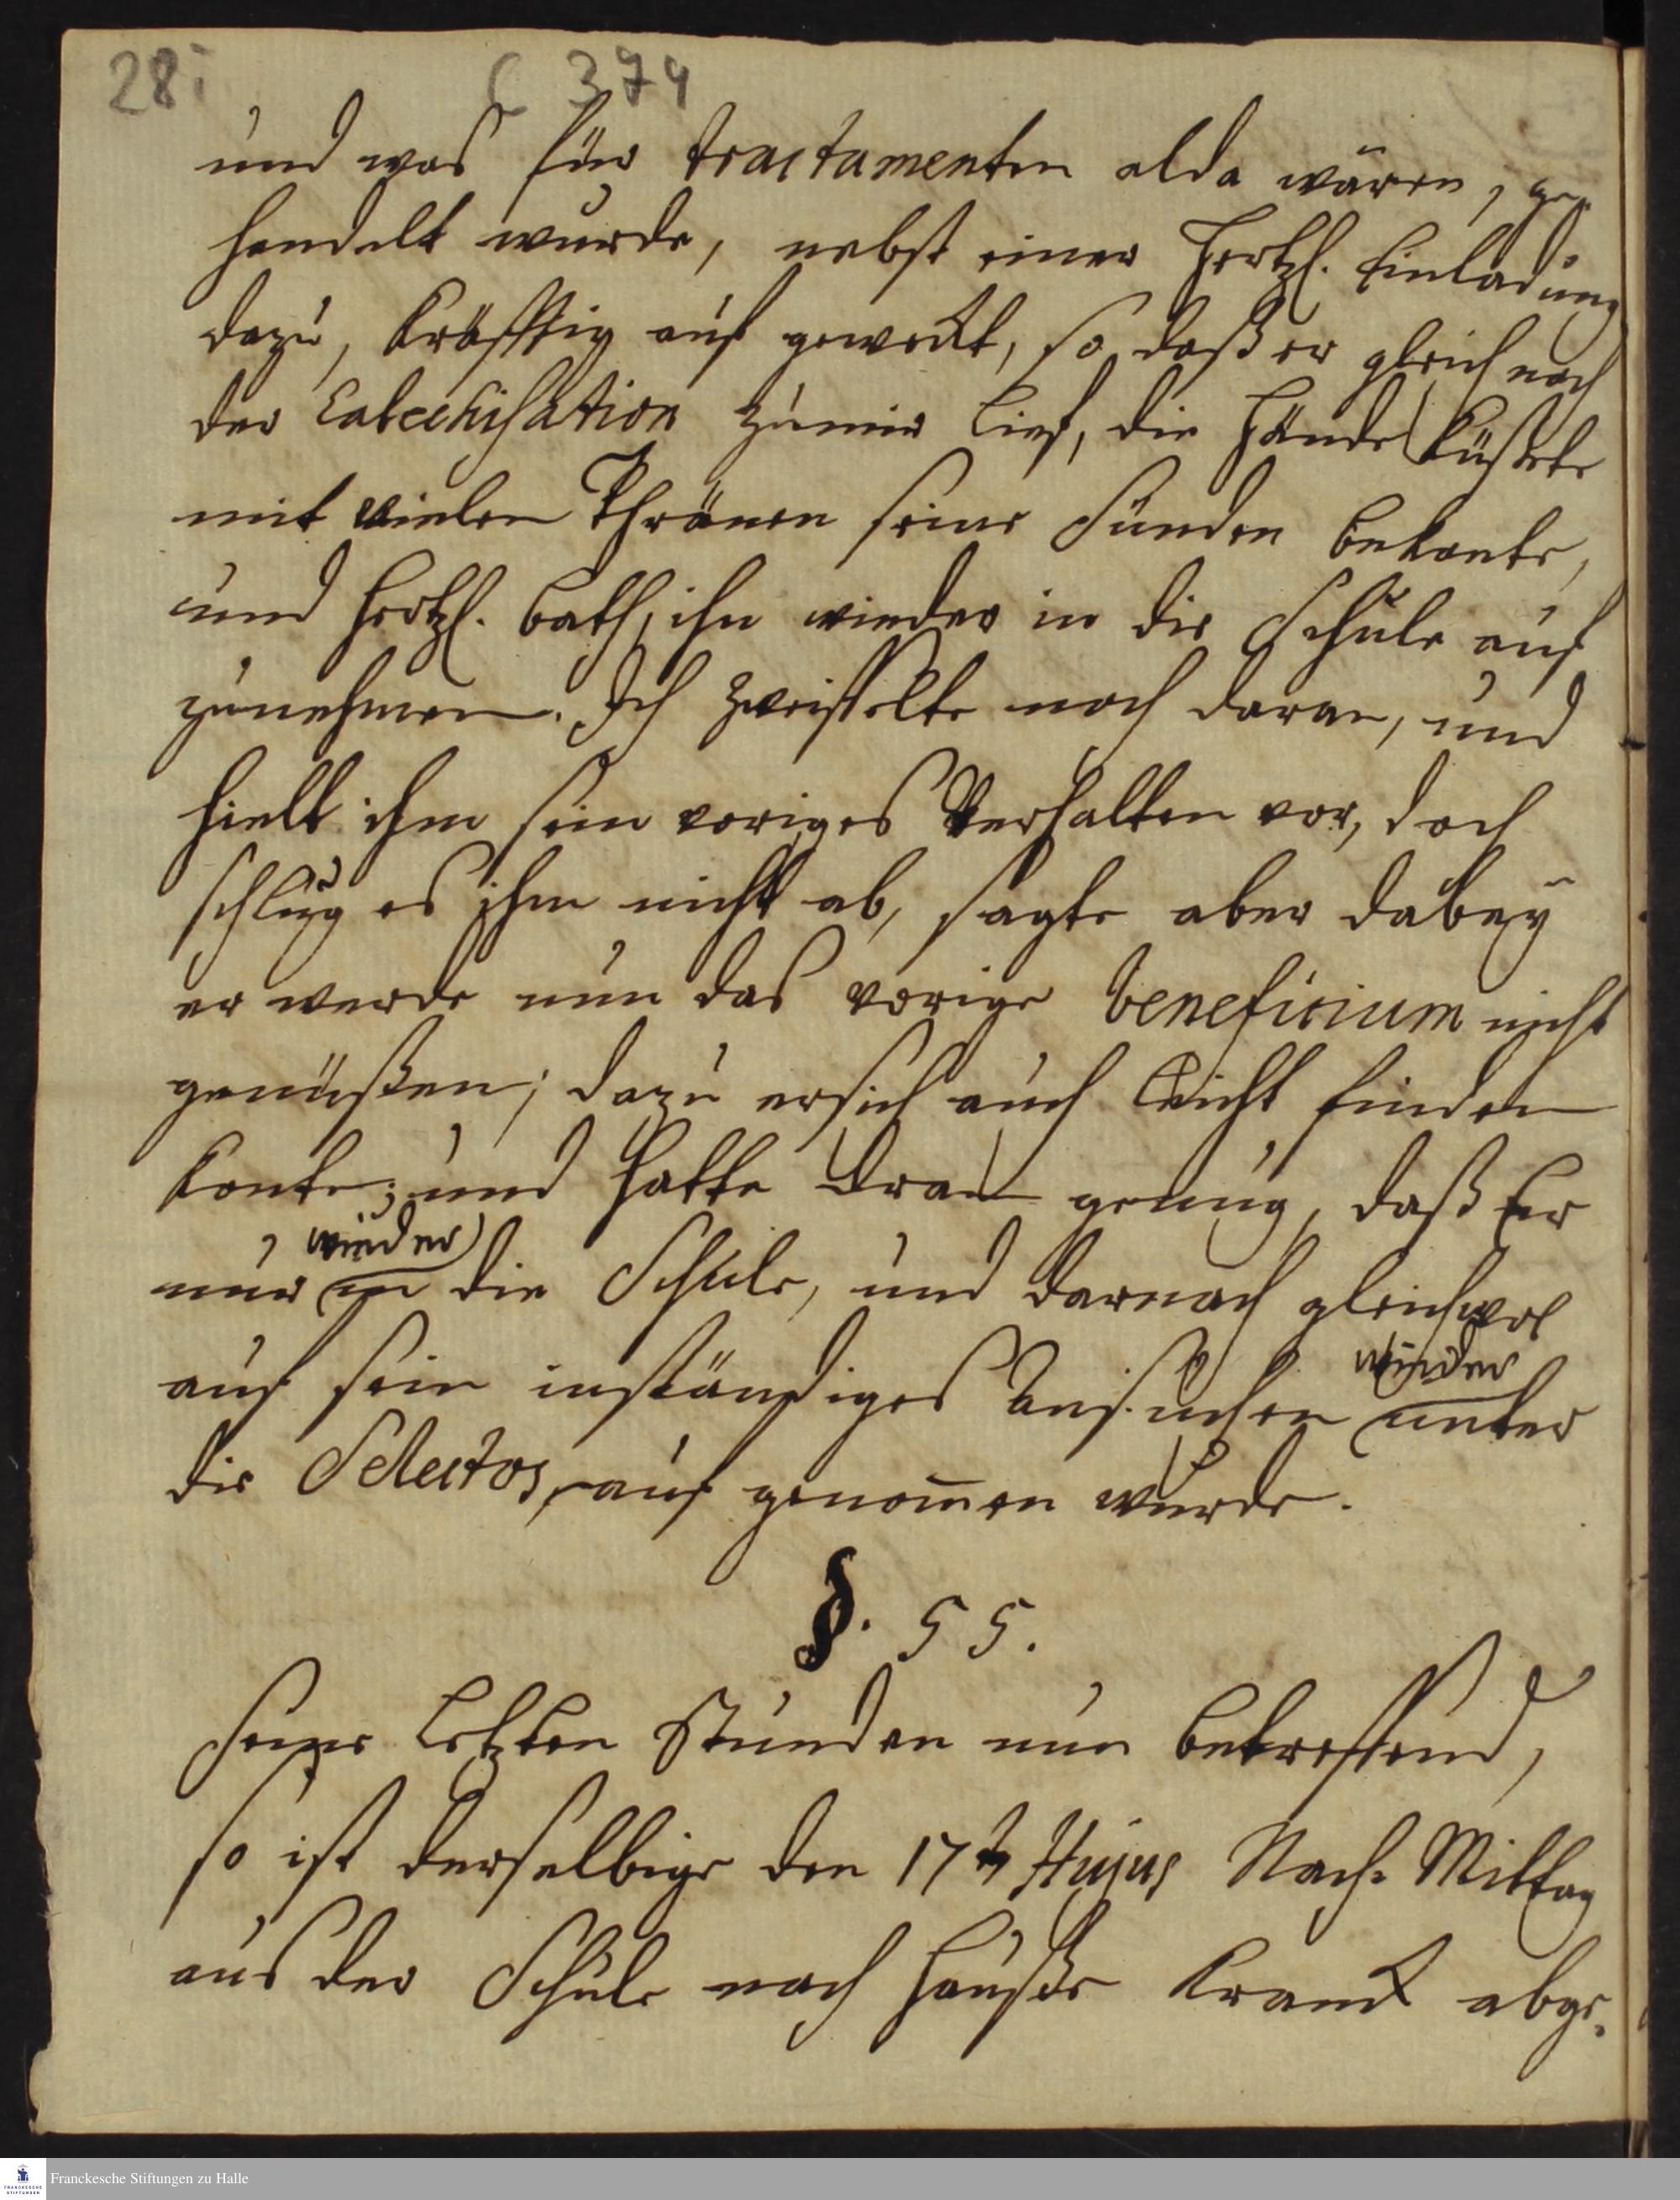 28i C 374
und was für tractamenten alda wären, ge-
handelt wurde, nebst einer hertzl. Einladung
dazu, kräfftig auf geweckt, so daß er gleich nach
der Catechisation zu mir lief, die Hände küßete
mit vielen Thränen seine Sünden bekante,
und hertzl. bath, ihn wieder in die Schule auf
zunehmen. Ich zweiffelte noch daran, und
hielt ihm sein voriges Verhalten vor, doch
schlug es ihm nicht ab, sagte aber dabey
er werde nun das vorige beneficium nicht
genüßen; dazu er sich auch leicht finden
konte; und hatte dran genug, daß Er
wieder
nur in die Schule, und darnach gleichwol
wieder
auf sein inständiges Ansuchen unter
die Selectos, auf genom̅en wurde.
§. 55.
Seine letzten Stunden nun betreffend,
so ist derselbige den 17t Hujus Nach-Mittag
aus der Schule nach Hauße kranck abge-
Franckesche Stiftungen zu Halle
FRANCKESCHE
STIFTUNGEN